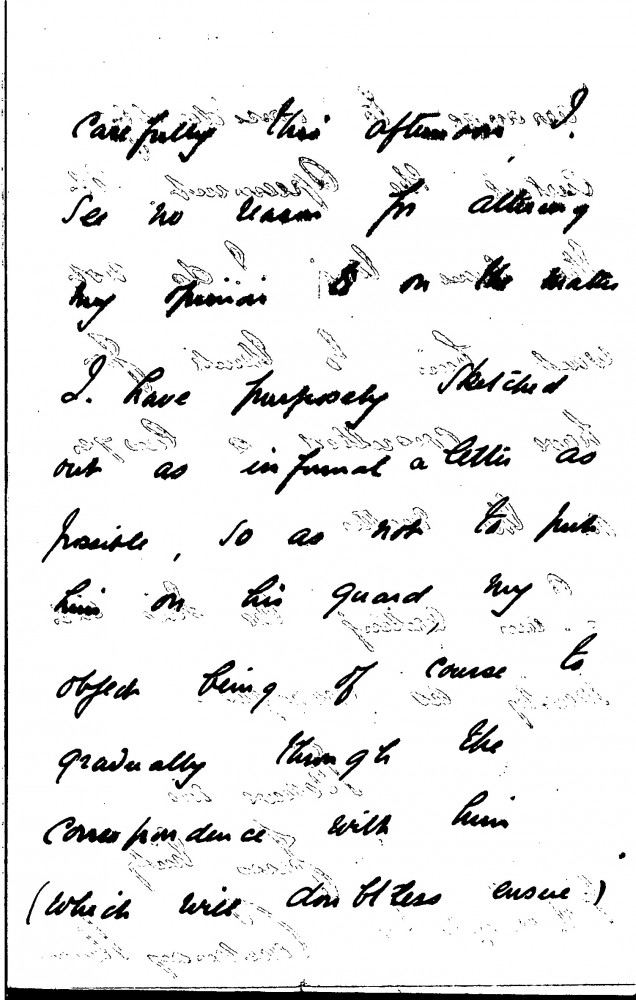 carefully this afternoon I.
see no reason for altering
my opinion on the matter
I. have purposely sketched
out as informal a letter as
possible, so as not to put
him on his guard, my
object being of course to
gradually through the
correspondence with him
(which will doubtless ensue)